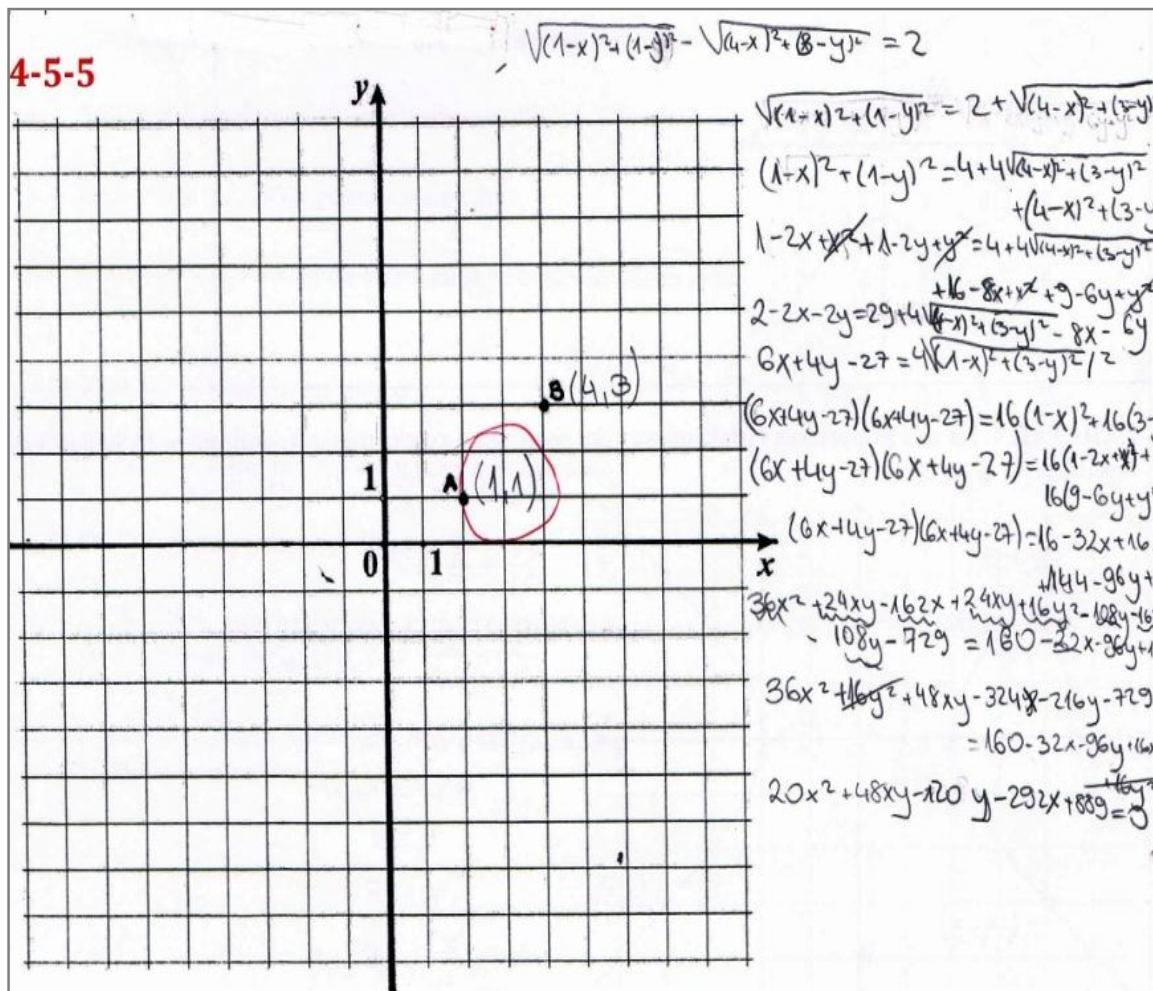 √(1-x)²+(1-y)² - √(4-x)²+(3-y)² = 2
4-5-5
y
√(1-x)²+(1-y)² = 2 + √(4-x)²+(3-y)
(1-x)²+(1-y)²=4+4√(4-x)²+(3-y)²
+(4-x)²+(3-y
1-2x+x²+1-2y+y²=4+4√(4-x)²+(3-y)²
+16-8x+x²+9-6y+y²
2-2x-2y=29+4√(4-x)²+(3-y)² -8x-6y
6x+4y-27=4√(1-x)²+(3-y)² /²
B (4,3)
(6x+4y-27)(6x+4y-27)=16(1-x)²+16(3-
(6x+4y-27)(6x+4y-27)=16(1-2x+x²)+
1
A (1,1)
16(9-6y+y²
(6x+4y-27)(6x+4y-27)=16-32x+16
0 1 x
+144-96y+
36x²+24xy-162x+24xy+16y²-108y-16
-108y-729=160-32x-96y+1
36x²+16y²+48xy-324x-216y-729
=160-32x-96y+16x
+16y²
20x²+48xy-120y-292x+889=